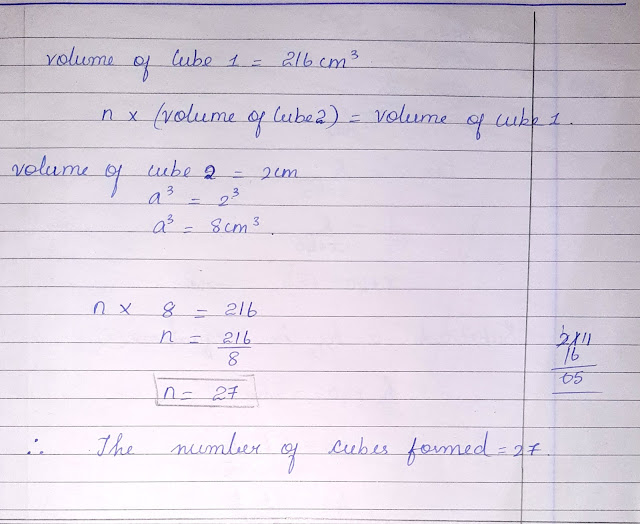 volume of cube 1 = 216 cm³
n x (volume of cube 2) = volume of cube 1.
volume of cube 2 = 2cm
a³ = 2³
a³ = 8cm³.
n x 8 = 216
n = 216
8
n = 27
16
05
∴ The number of cubes formed = 27.